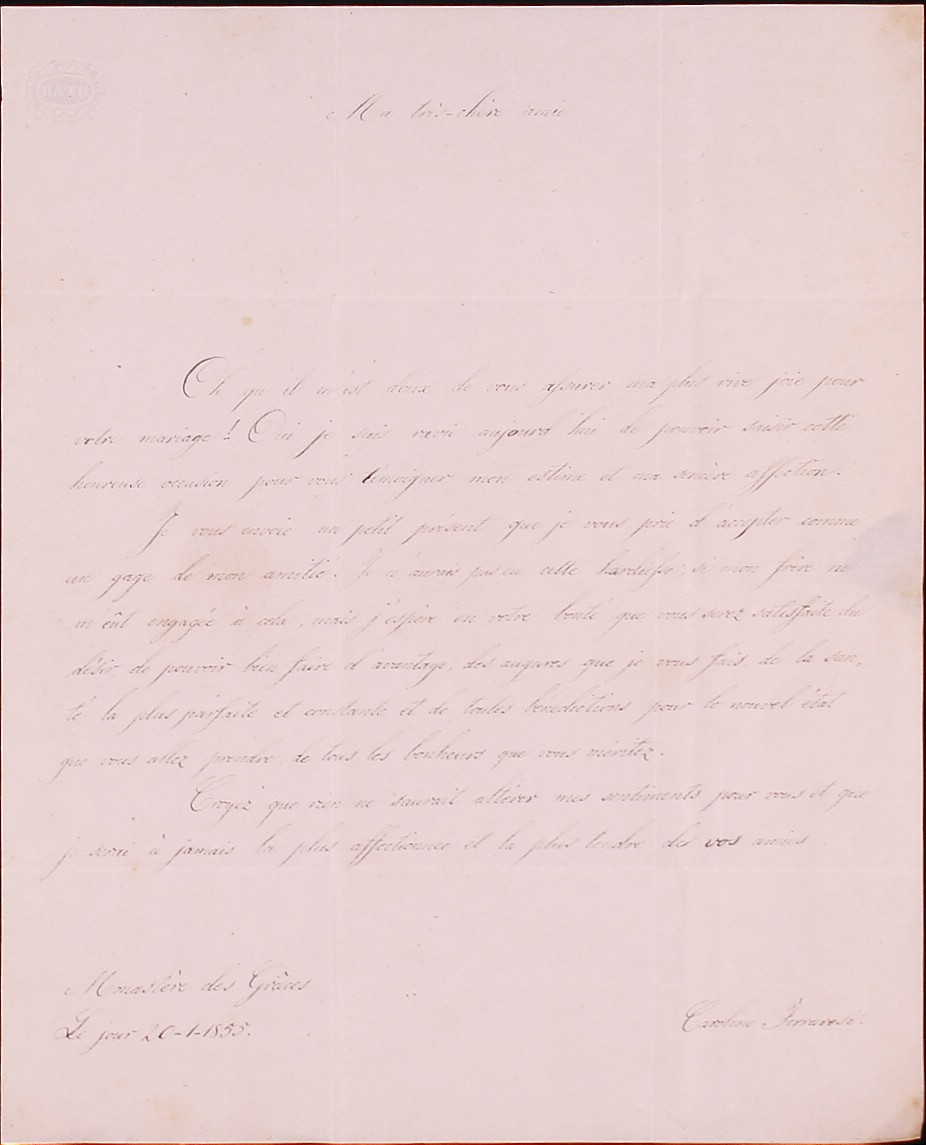 BATH
Ma très-chère amie
Oh qu'il m'est doux de vous assurer ma plus vive joie pour
votre mariage! Oui je suis ravie aujourd'hui de pouvoir saisir cette
heureuse occasion pour vous témoigner mon estime et ma sincère affection.
Je vous envoie un petit présent que je vous prie d'accepter comme
un gage de mon amitié. Je n'aurais pas eu cette hardiesse, si mon frère ne
m'eût engagée à cela, mais j'espère en votre bonté que vous serez satisfaite du
désir de pouvoir bien faire d'avantage, des augures que je vous fais, de la san,
té la plus parfaite et constante et de toutes bénédictions pour le nouvel état
que vous allez prendre, de tous les bonheurs que vous méritez.
Croyez que rien ne saurait altérer mes sentiments pour vous et que
je serai à jamais la plus affectionnée et la plus tendre des vos amies
Monastère des Grâces
Le jour 20-1-1855.
Caroline Ferraresi.